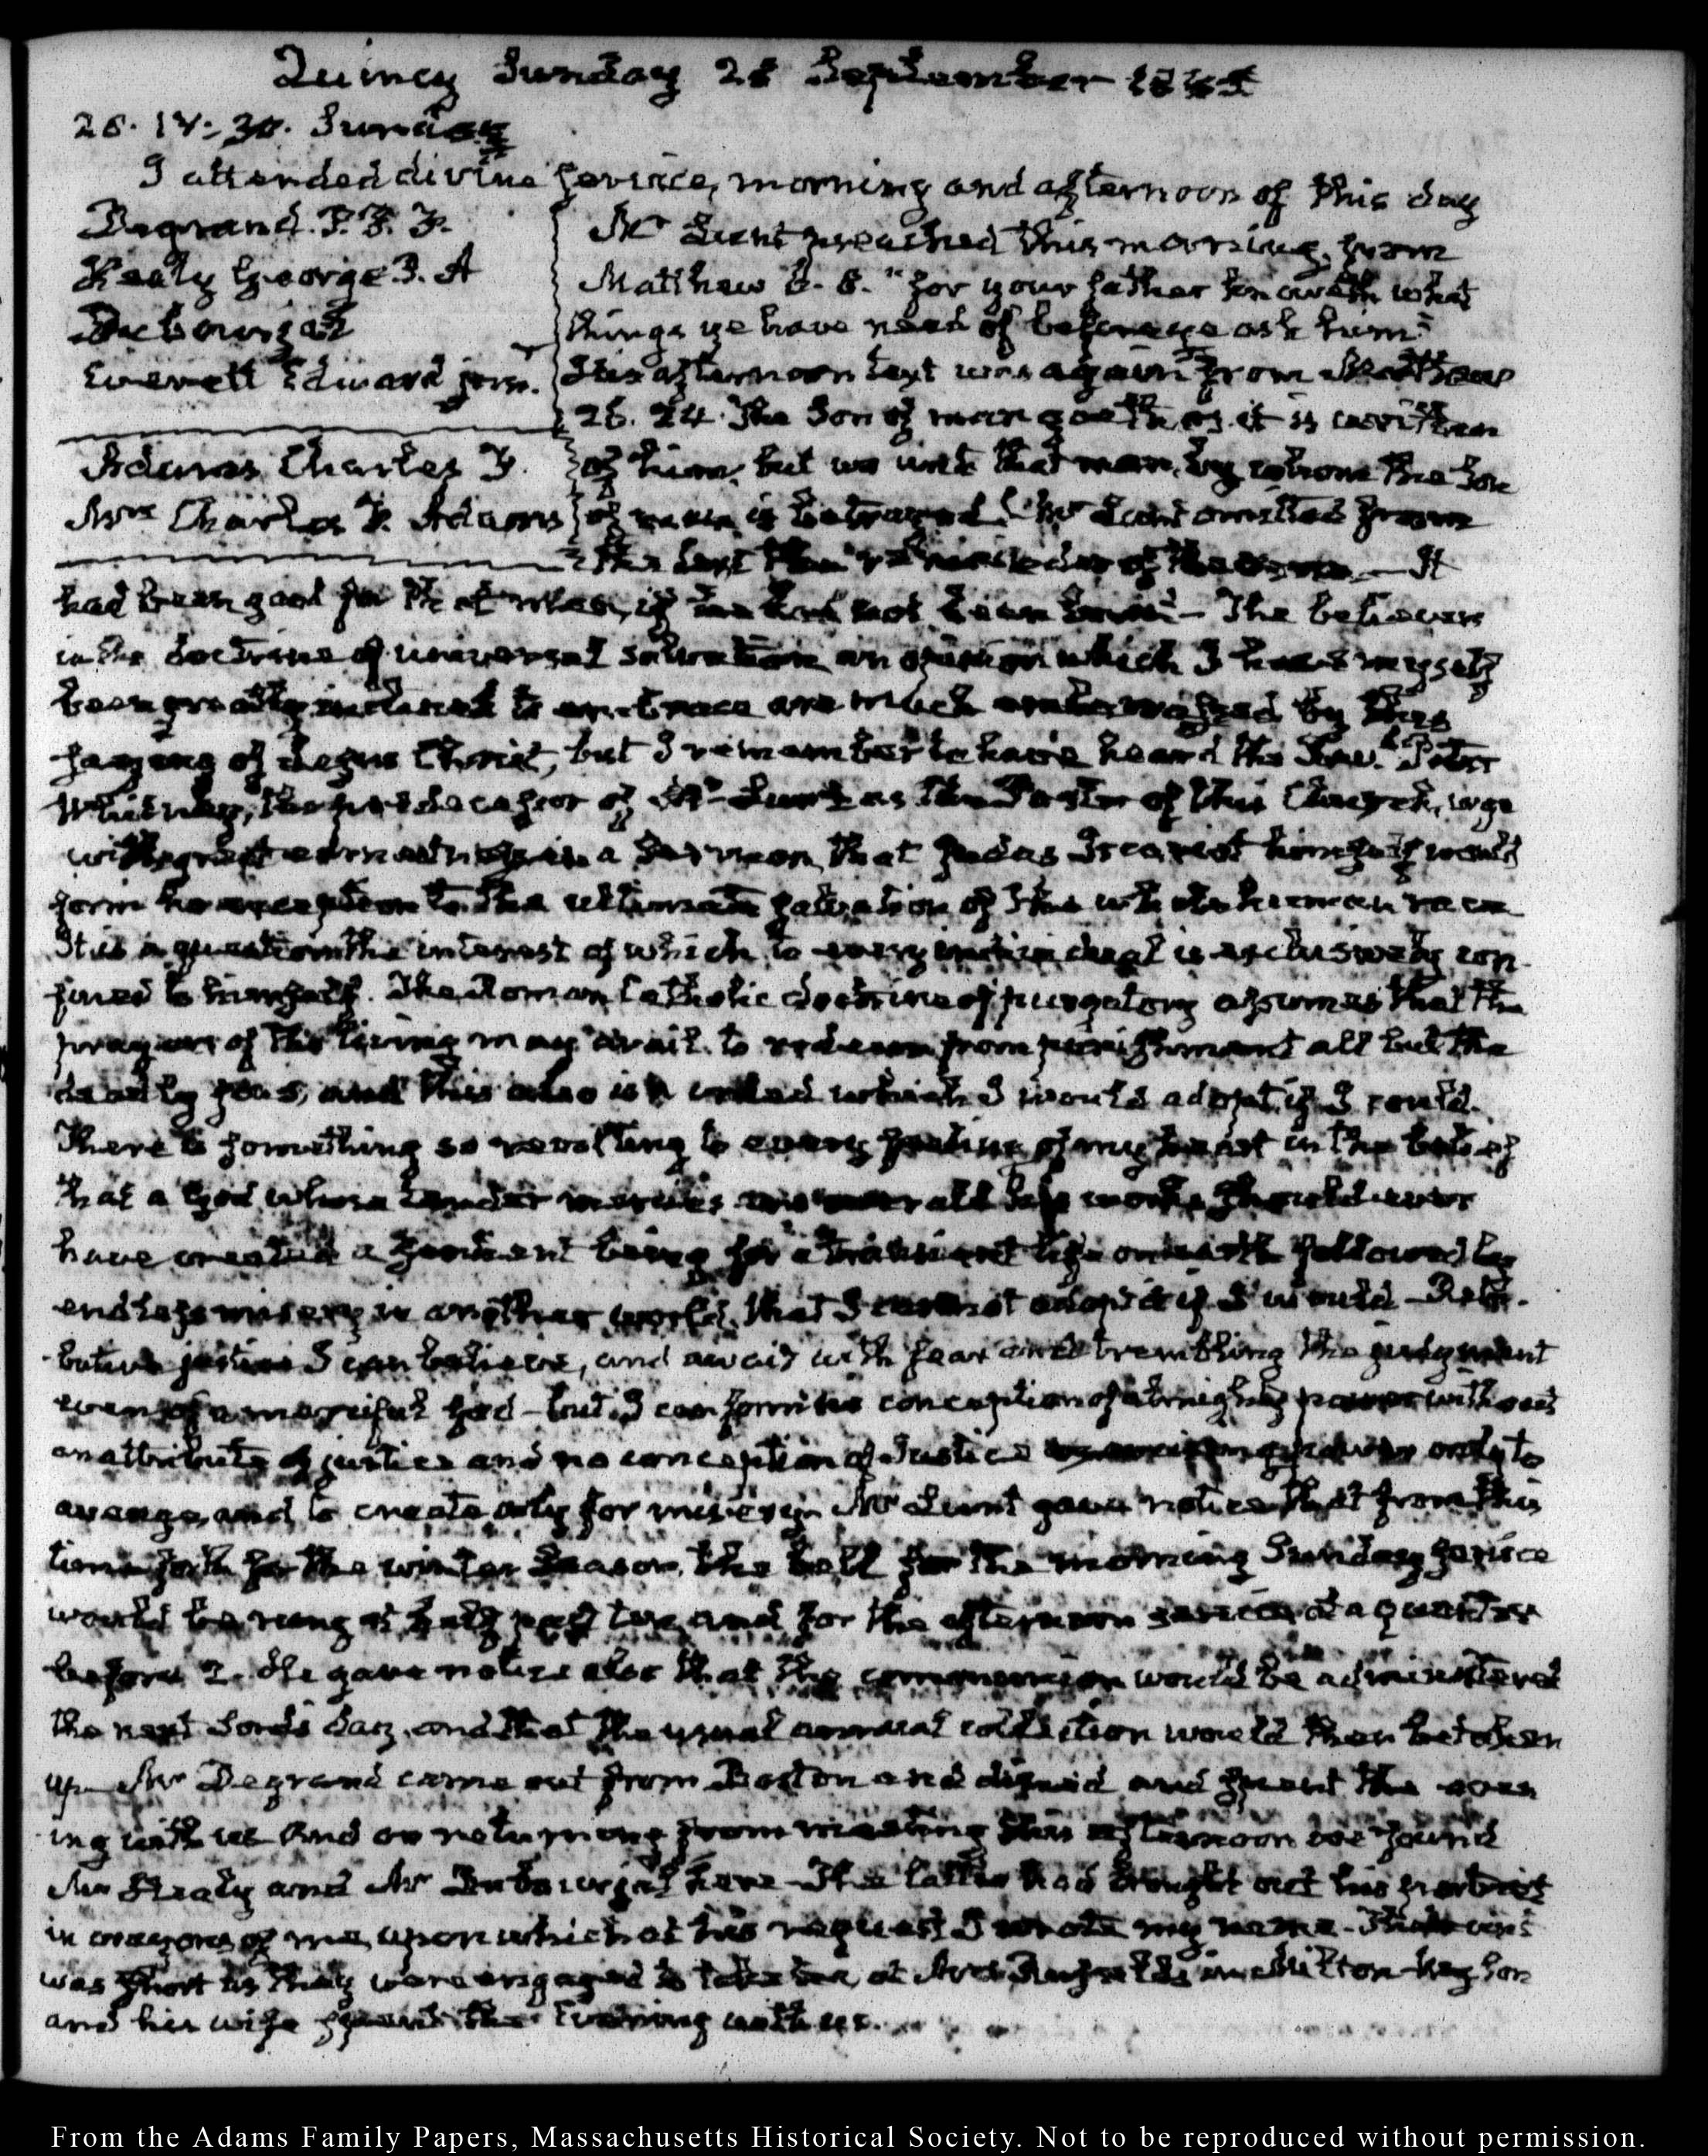 Quincy Sunday 28 September 1845
28. IV:30. Sunday
I attended divine service, morning and afternoon of this day
Degrand. P. P. F.
Healy George P. A
Dubourjal
Everett Edward jun.
Adams Charles F.
Mrs Charles F. Adams
Mr Lunt preached this morning, from
Matthew 6. 8. "for your father knoweth what
things ye have need of before ye ask him"
His afternoon text was again from Matthew
26. 24. The Son of man goeth as it is written
of him, but wo unto that man, by whom the Son
of man is betrayed! Mr Lunt omitted from
the text the remainder of the verse — It
had been good for that man, if he had not been born" — The believers
in the doctrine of universal salvation an opinion which I have myself
been greatly inclined to embrace are much embarrassed by this
saying of Jesus Christ, but I remember to have heard the Revd. Peter
Whitney, the predecessor of Mr Lunt as the Pastor of this Church, urge
with great earnestness in a Sermon, that Judas Iscariot himself would
form no exception to the ultimate salvation of the whole human race
It is a question the interest of which to every individual is exclusively con
fined to himself. The Roman Catholic doctrine of purgatory assumes that the
prayers of the living may avail to redeem from punishment all but the
deadly sins, and this also is a creed which I would adopt if I could.
There is something so revolting to every feeling of my heart in the belief
that a God whose tender mercies are over all his works should ever
have created a sentient being for a transient life on earth followed by
endless misery in another world, that I cannot adopt it if I would — Retri-
butive justice I can believe, and await with fear and trembling the judgment
even of a merciful God — but I can form no conception of almighty power without
an attribute of justice and no conception of Justice only to
avenge, and to create only for misery. Mr Lunt gave notice that from this
time forth for the winter season, the bell for the morning Sunday service
would be rung at half past ten, and for the afternoon service at a quarter
before 2. He gave notice also that the communion would be administered
the next Lord's day, and that the usual annual collection would then be taken
up — Mr Degrand came out from Boston and dined and spent the even
ing with us And on returning from meeting this afternoon we found
Mr Healy and Mr Dubourjal here — The latter had brought out his portrait
in crayons of me, upon which at his request I wrote my name — Their visit
was short as they were engaged to take tea at Mrs in Milton — My Son
and his wife spent the Evening with us.
From the Adams Family Papers, Massachusetts Historical Society. Not to be reproduced without permission.